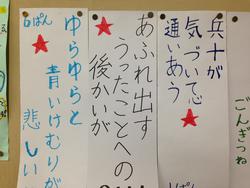 ごんぎつね
兵十が
気づいて心
通いあう
あふれ出す
うったことへの
後かいが
ゆらゆらと
青いけむりが
悲しい